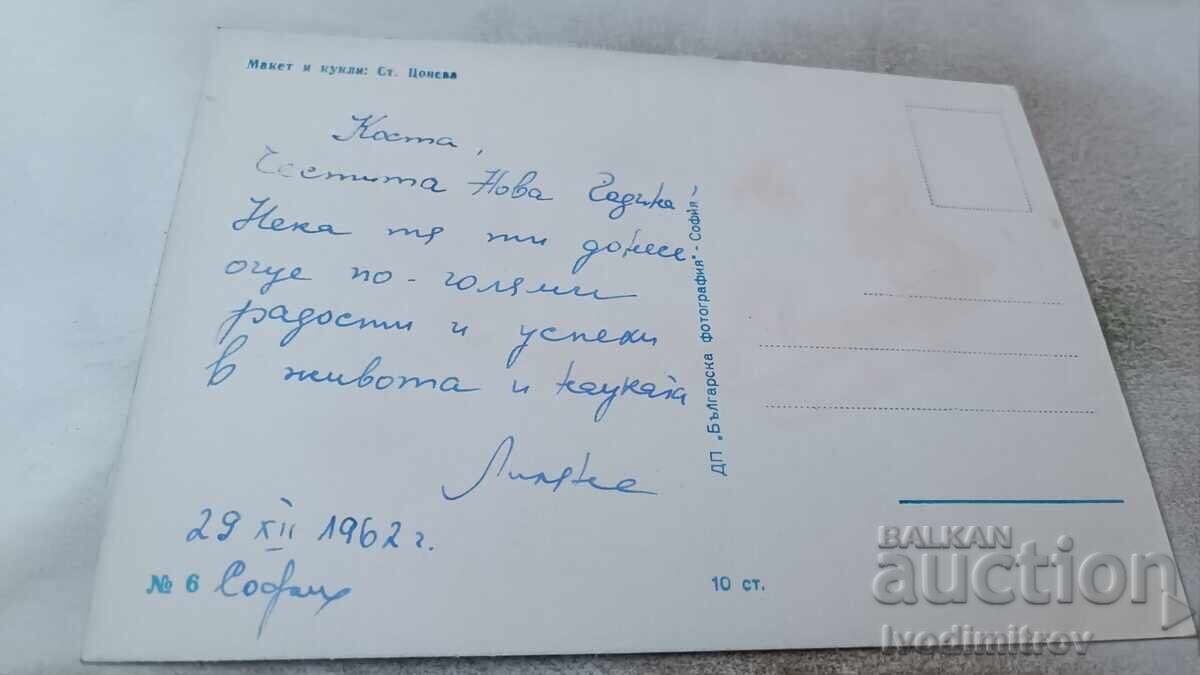 Макет и кукли: Ст. Цонева
Коста,
Честита Нова Година!
Нека тя ти донесе
още по-големи
радости и успехи
в живота и науката
29 XII 1962 г.
София
№ 6
ДП „Българска фотография" - София
10 ст.
BALKAN
auction
Ivodimitrov